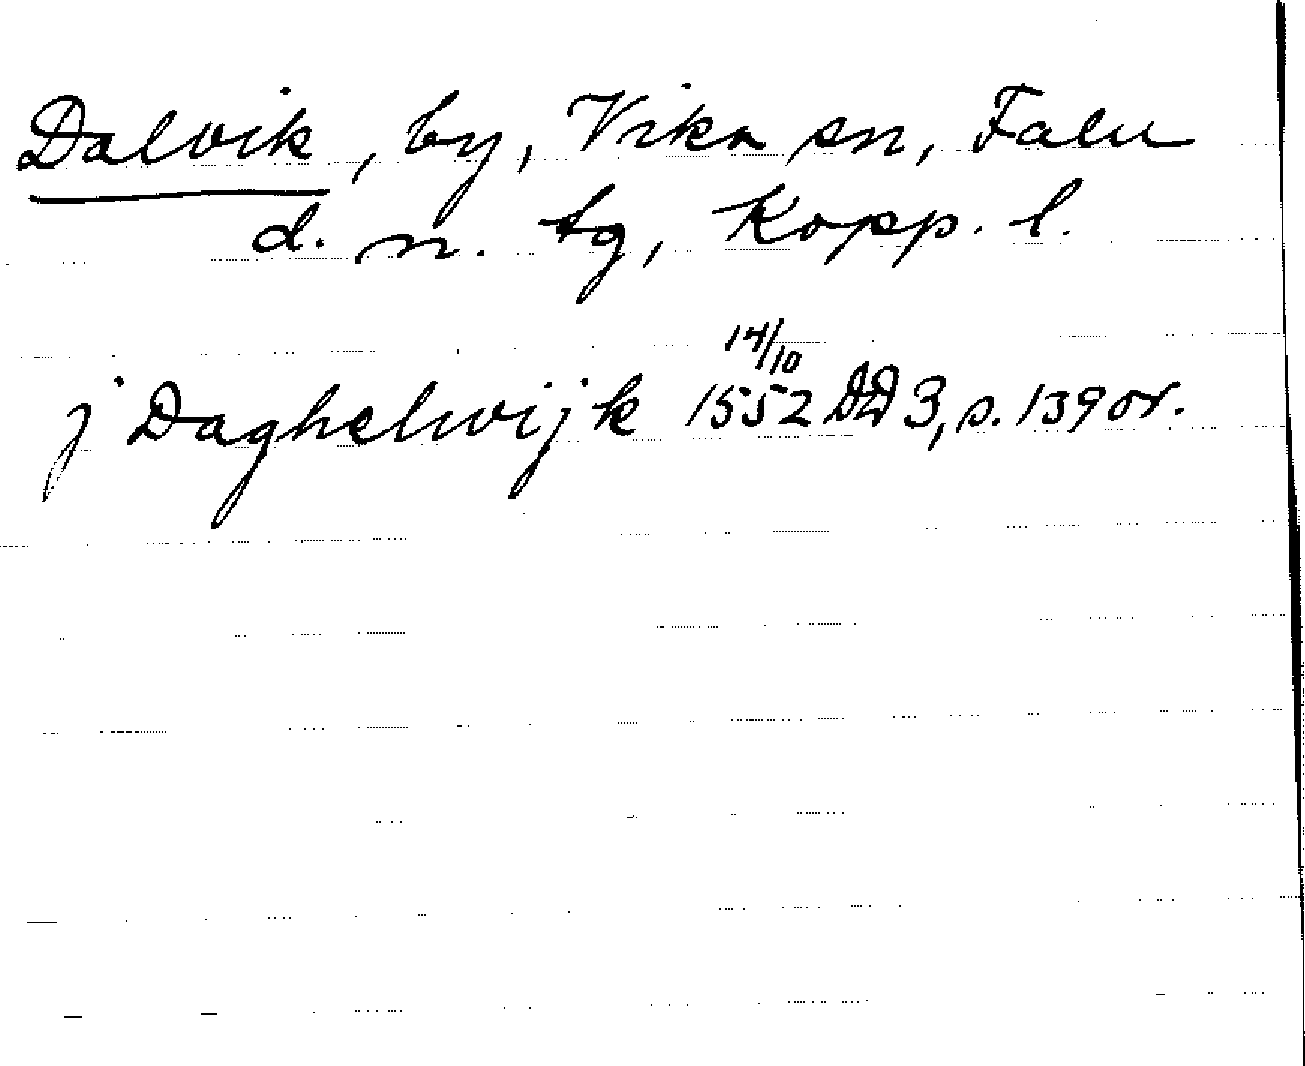 Dalvik, by, Vika sn, Falu
d. n. tg, Kopp. l.
j Daghelwijk 14/10 1552 DD 3, s. 139 or.